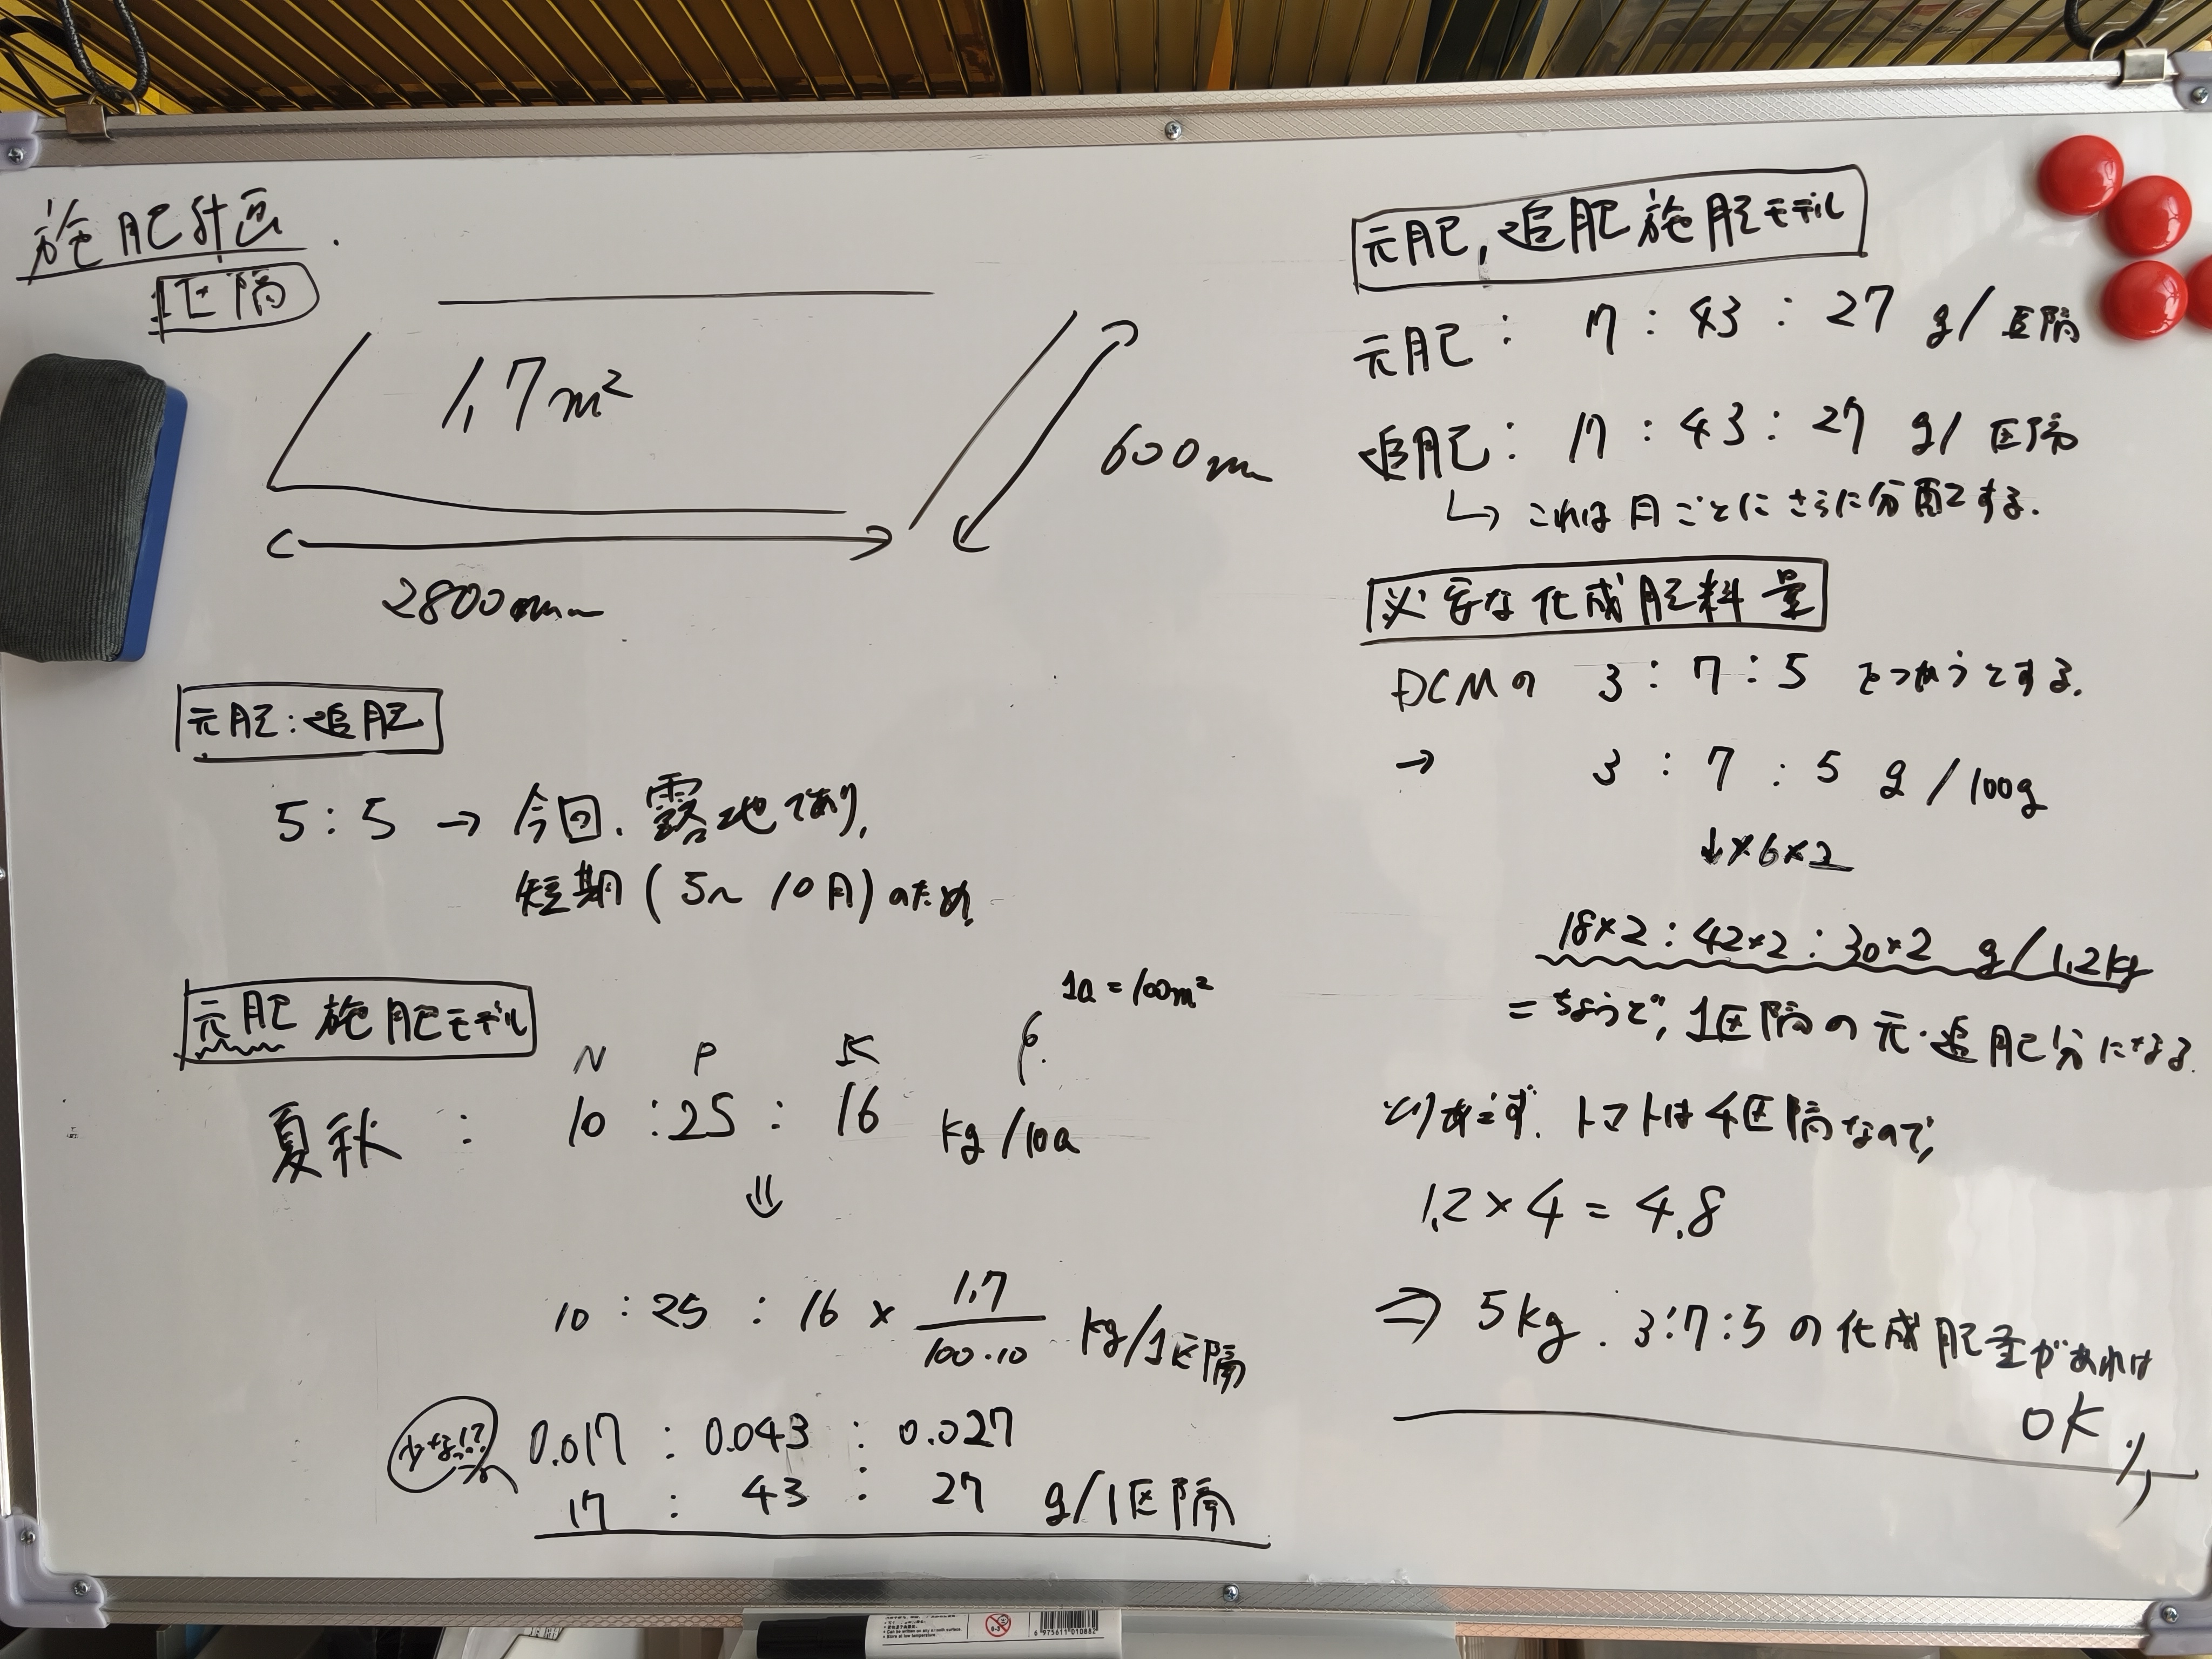 施肥計画.
1区隔
1.7m²
600mm
2800mm
元肥:追肥
5:5 → 今回、露地であり、
短期(5〜10月)のため
元肥 施肥モデル
1a=100m²
N P K
夏秋 : 10 :25 : 16 kg/10a
⇓
10 : 25 : 16 × 1.7/100・10 kg/1区隔
少な!? 0.017 : 0.043 : 0.027
17 : 43 : 27 g/1区隔
元肥,追肥施肥モデル
元肥: 17 : 43 : 27 g/区隔
追肥: 17 : 43 : 27 g/区隔
↳ これは月ごとにさらに分配する.
必要な化成肥料量
DCMの 3 : 7 : 5 をつかうとする.
→ 3 : 7 : 5 g/100g
↓×6×2
18×2 : 42×2 : 30×2 g/1.2kg
= ちょうど、1区隔の元・追肥分になる.
とりあえず、トマトは4区隔なので、
1.2×4=4.8
⇒ 5kg. 3:7:5 の化成肥量があれば
OK